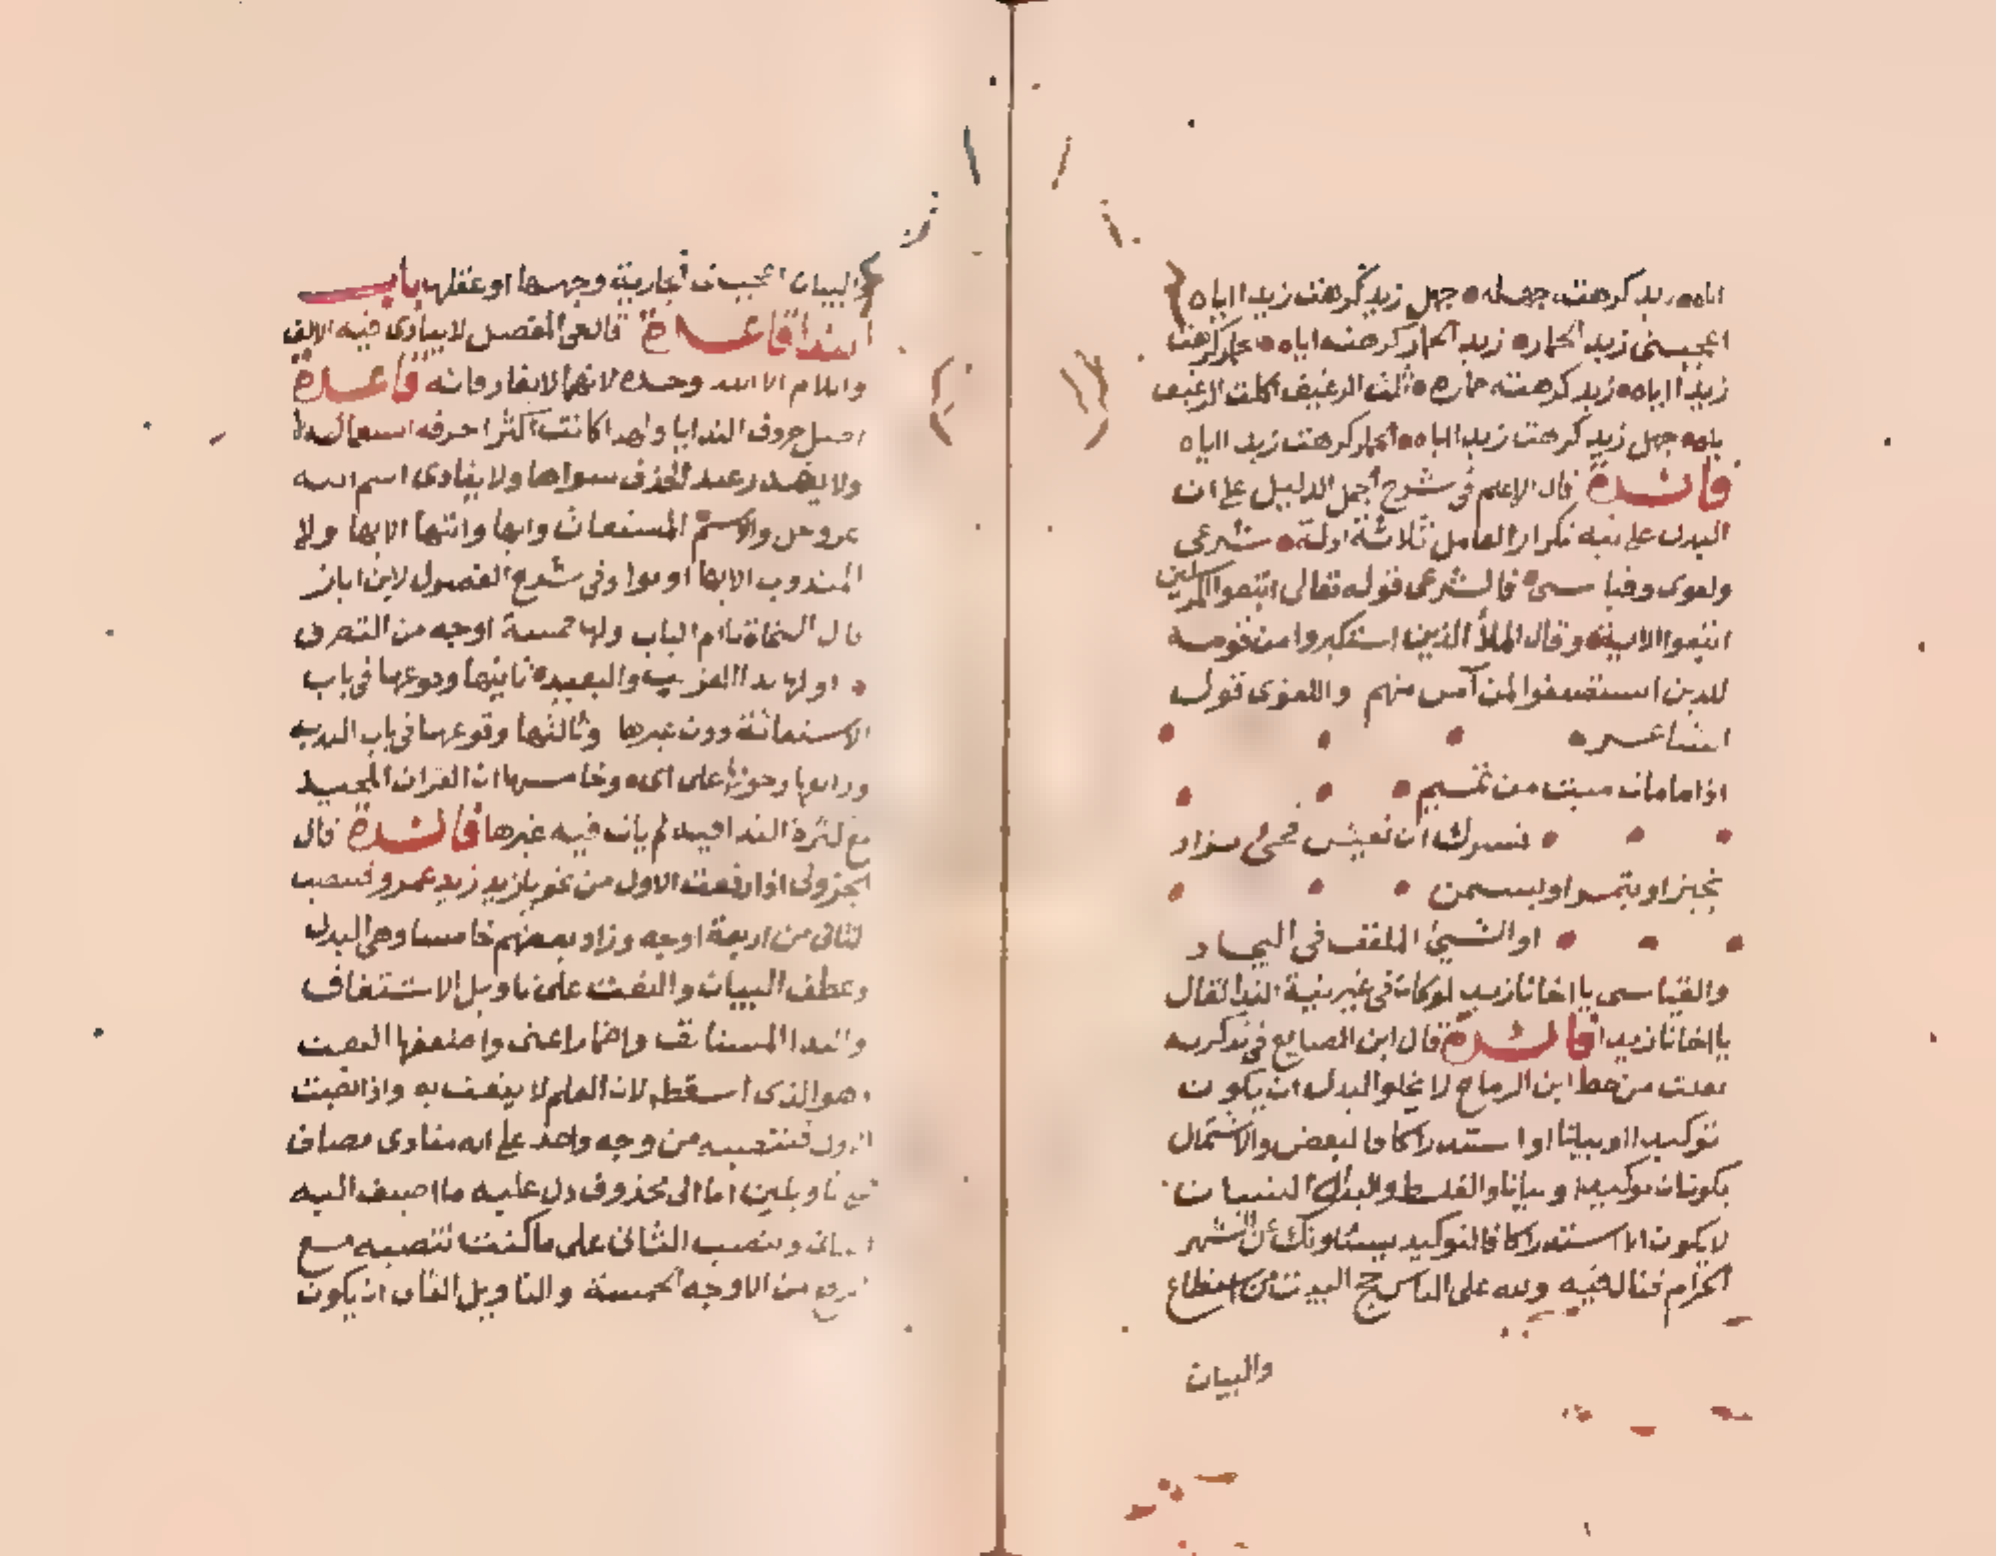 اياه زيد كرهت جهله جهل زيد كرهت زيدا اياه
اعجبنى زيد الحمار زيد الحمار كرهته اياه حمار كرهت
زيدا اياه زيد كرهته حماره ثلث الرغيف اكلت الرغيف
اياه جهل زيد كرهت زيد اياه الحمار كرهت زيد اياه
فائدة قال الاعلم فى شرح الجمل الدليل على ان
البدل على نية تكرار العامل ثلاثة ادلة شرعى
ولغوى وقياسى فالشرعى قوله تعالى اتبعوا المرسلين
اتبعوا الاية وقال الملأ الذين استكبروا من قومه
للذين استضعفوا لمن آمن منهم واللغوى قول
الشاعر
اذا ما مات ميت من تميم
فسرك ان تعيش فجئ بزاد
بخبز او بتمر او بسمن
او الشىئ الملفف فى البجاد
والقياسى يا اخانا زيد لو كان فى غير نية الندا لقال
يا اخانا زيدا فائدة قال ابن الصايع فى تذكرته
نقلت من خط ابن الرماح لا يخلو البدل ان يكون
توكيدا او بيانا او استدراكا فالبعض والاشتمال
يكونان توكيدا وبيانا والغلط والبدا والنسيان
لا يكون الا استدراكا فالتوكيد يسئلونك عن الشهر
الحرام قتال فيه ولله على الناس حج البيت من استطاع
والبيان
والبيان اعجبتنى الجارية وجهها او عقلها باب
الندا قاعدة قال فى المفصل لا ينادى فيه الالف
واللام الا الله وحده لانها لا يفارقانه قاعدة
اصل حروف الندا يا ولهذا كانت اكثر احرفه استعمالا
ولا يقدر عند الحذف سواها ولا ينادى اسم الله
عز وجل والاسم المستغاث وايها وايتها الا بها ولا
المندوب الا بها او بوا وفى شرح الفصول لابن اياز
قال النحاة يا ام الباب ولها خمسة اوجه من التصرف
اولها ندا القريب والبعيد ثانيها وقوعها فى باب
الاستغاثة دون غيرها وثالثها وقوعها فى باب الندبة
ورابعها دخولها على اى وخامسها ان القران المجيد
مع كثرة الندا فيه لم يات فيه غيرها فائدة قال
الجزولى اذا رفعت الاول من نحو يا زيد زيد عمرو فتنصب
الثانى من اربعة اوجه وزاد بعضهم خامسا وهى البدل
وعطف البيان والنعت على تاويل الاشتقاق
والندا المستانف واضمار اعنى واضعفها النعت
وهو الذى اسقط لان العلم لا ينعت به واذا نصبت
الاول فتنصبه من وجه واحد على انه منادى مضاف
مع تاويلين اما الى محذوف دل عليه ما اضيف اليه
الثانى وينصب الثانى على ما كنت تنصبه مع
الرفع من الاوجه الخمسة والتاويل الثانى ان يكون